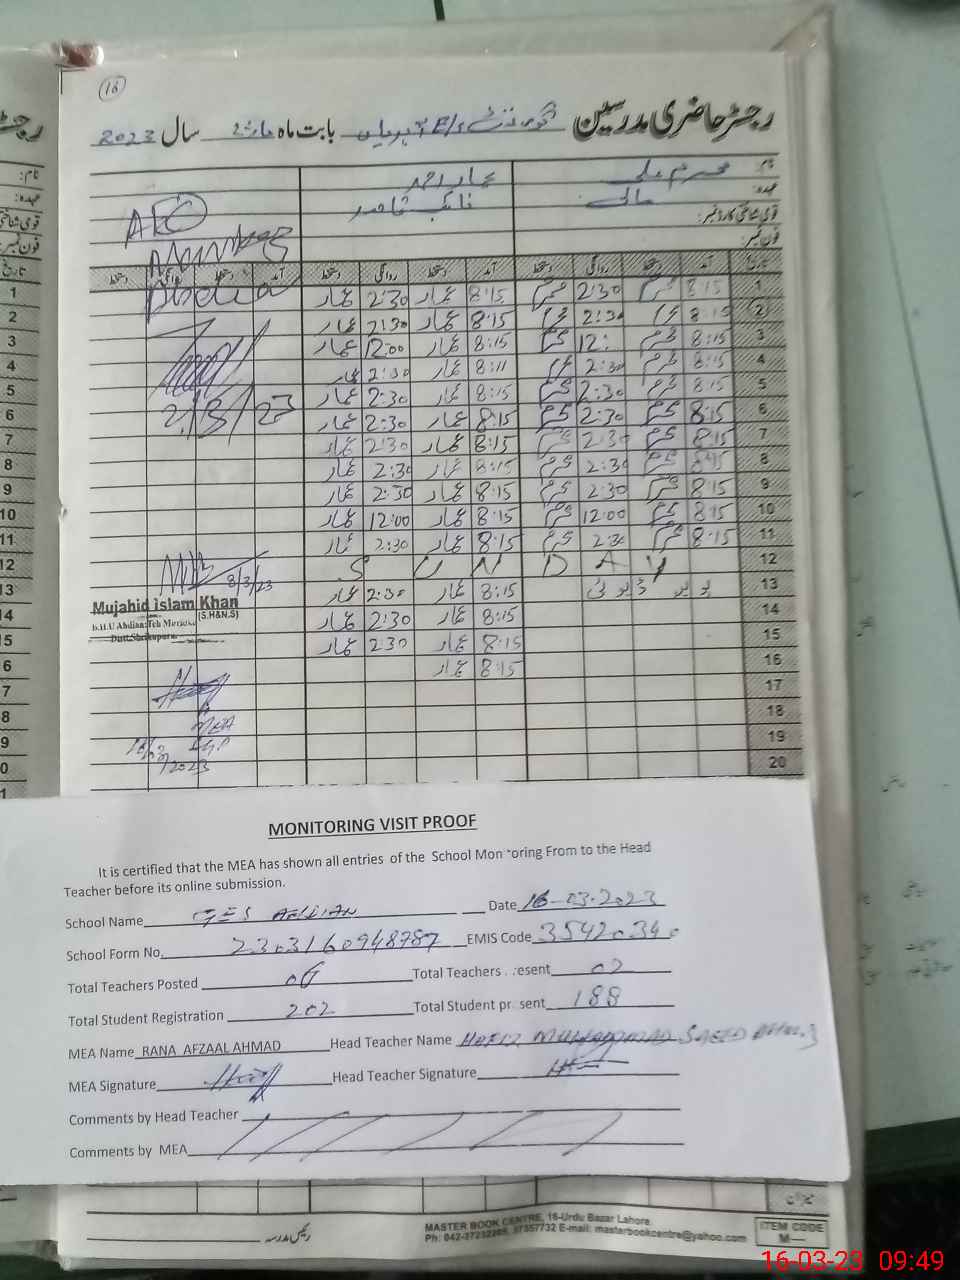 16
رجسٹر حاضری مدرسین گورنمنٹ E/S بابت ماہ مارچ سال 2023
نام: محرم علی عمار احمد
عہدہ: مالی نائب قاصد
قومی شناختی کارڈ نمبر:
فون نمبر:
AEO
تاریخ آمد دستخط روانگی دستخط آمد دستخط روانگی دستخط آمد دستخط روانگی دستخط
1 8:15 محرم 2:30 محرم 8:15 عمار 2:30 عمار
2 8:15 محرم 2:30 محرم 8:15 عمار 2:30 عمار
3 8:15 محرم 12: محرم 8:15 عمار 12:00 عمار
4 8:15 محرم 2:30 محرم 8:11 عمار 2:30 عمار
5 8:15 محرم 2:30 محرم 8:15 عمار 2:30 عمار
6 8:15 محرم 2:30 محرم 8:15 عمار 2:30 عمار
2/3/23
7 8:15 محرم 2:30 محرم 8:15 عمار 2:30 عمار
8 8:15 محرم 2:30 محرم 8:15 عمار 2:30 عمار
9 8:15 محرم 2:30 محرم 8:15 عمار 2:30 عمار
10 8:15 محرم 12:00 محرم 8:15 عمار 12:00 عمار
11 8:15 محرم 2:30 محرم 8:15 عمار 2:30 عمار
12 SUNDAY
8/3/23
13 ڈیوٹی 8:15 عمار 2:30 عمار
Mujahid Islam Khan
(S.H&N.S)
B.H.U Abdian Teh Muridke
Distt.Sheikhupura
14 8:15 عمار 2:30 عمار
15 8:15 عمار 2:30 عمار
16 8:15 عمار
17
18
MEA
19
16/3/2023
20
MONITORING VISIT PROOF
It is certified that the MEA has shown all entries of the School Monitoring From to the Head
Teacher before its online submission.
School Name GES Date 16-03-2023
School Form No. 2303160948787 EMIS Code 35420340
Total Teachers Posted 06 Total Teachers Present 02
Total Student Registration 202 Total Student present 188
MEA Name RANA AFZAAL AHMAD Head Teacher Name HAFIZ MUHAMMAD SAEED
MEA Signature Head Teacher Signature
Comments by Head Teacher
Comments by MEA
نگران
رئیس مدرسہ
MASTER BOOK CENTRE, 16-Urdu Bazar Lahore.
Ph: 042-37232209, 37357732 E-mail: masterbookcentre@yahoo.com
ITEM CODE
M—
16-03-23 09:49